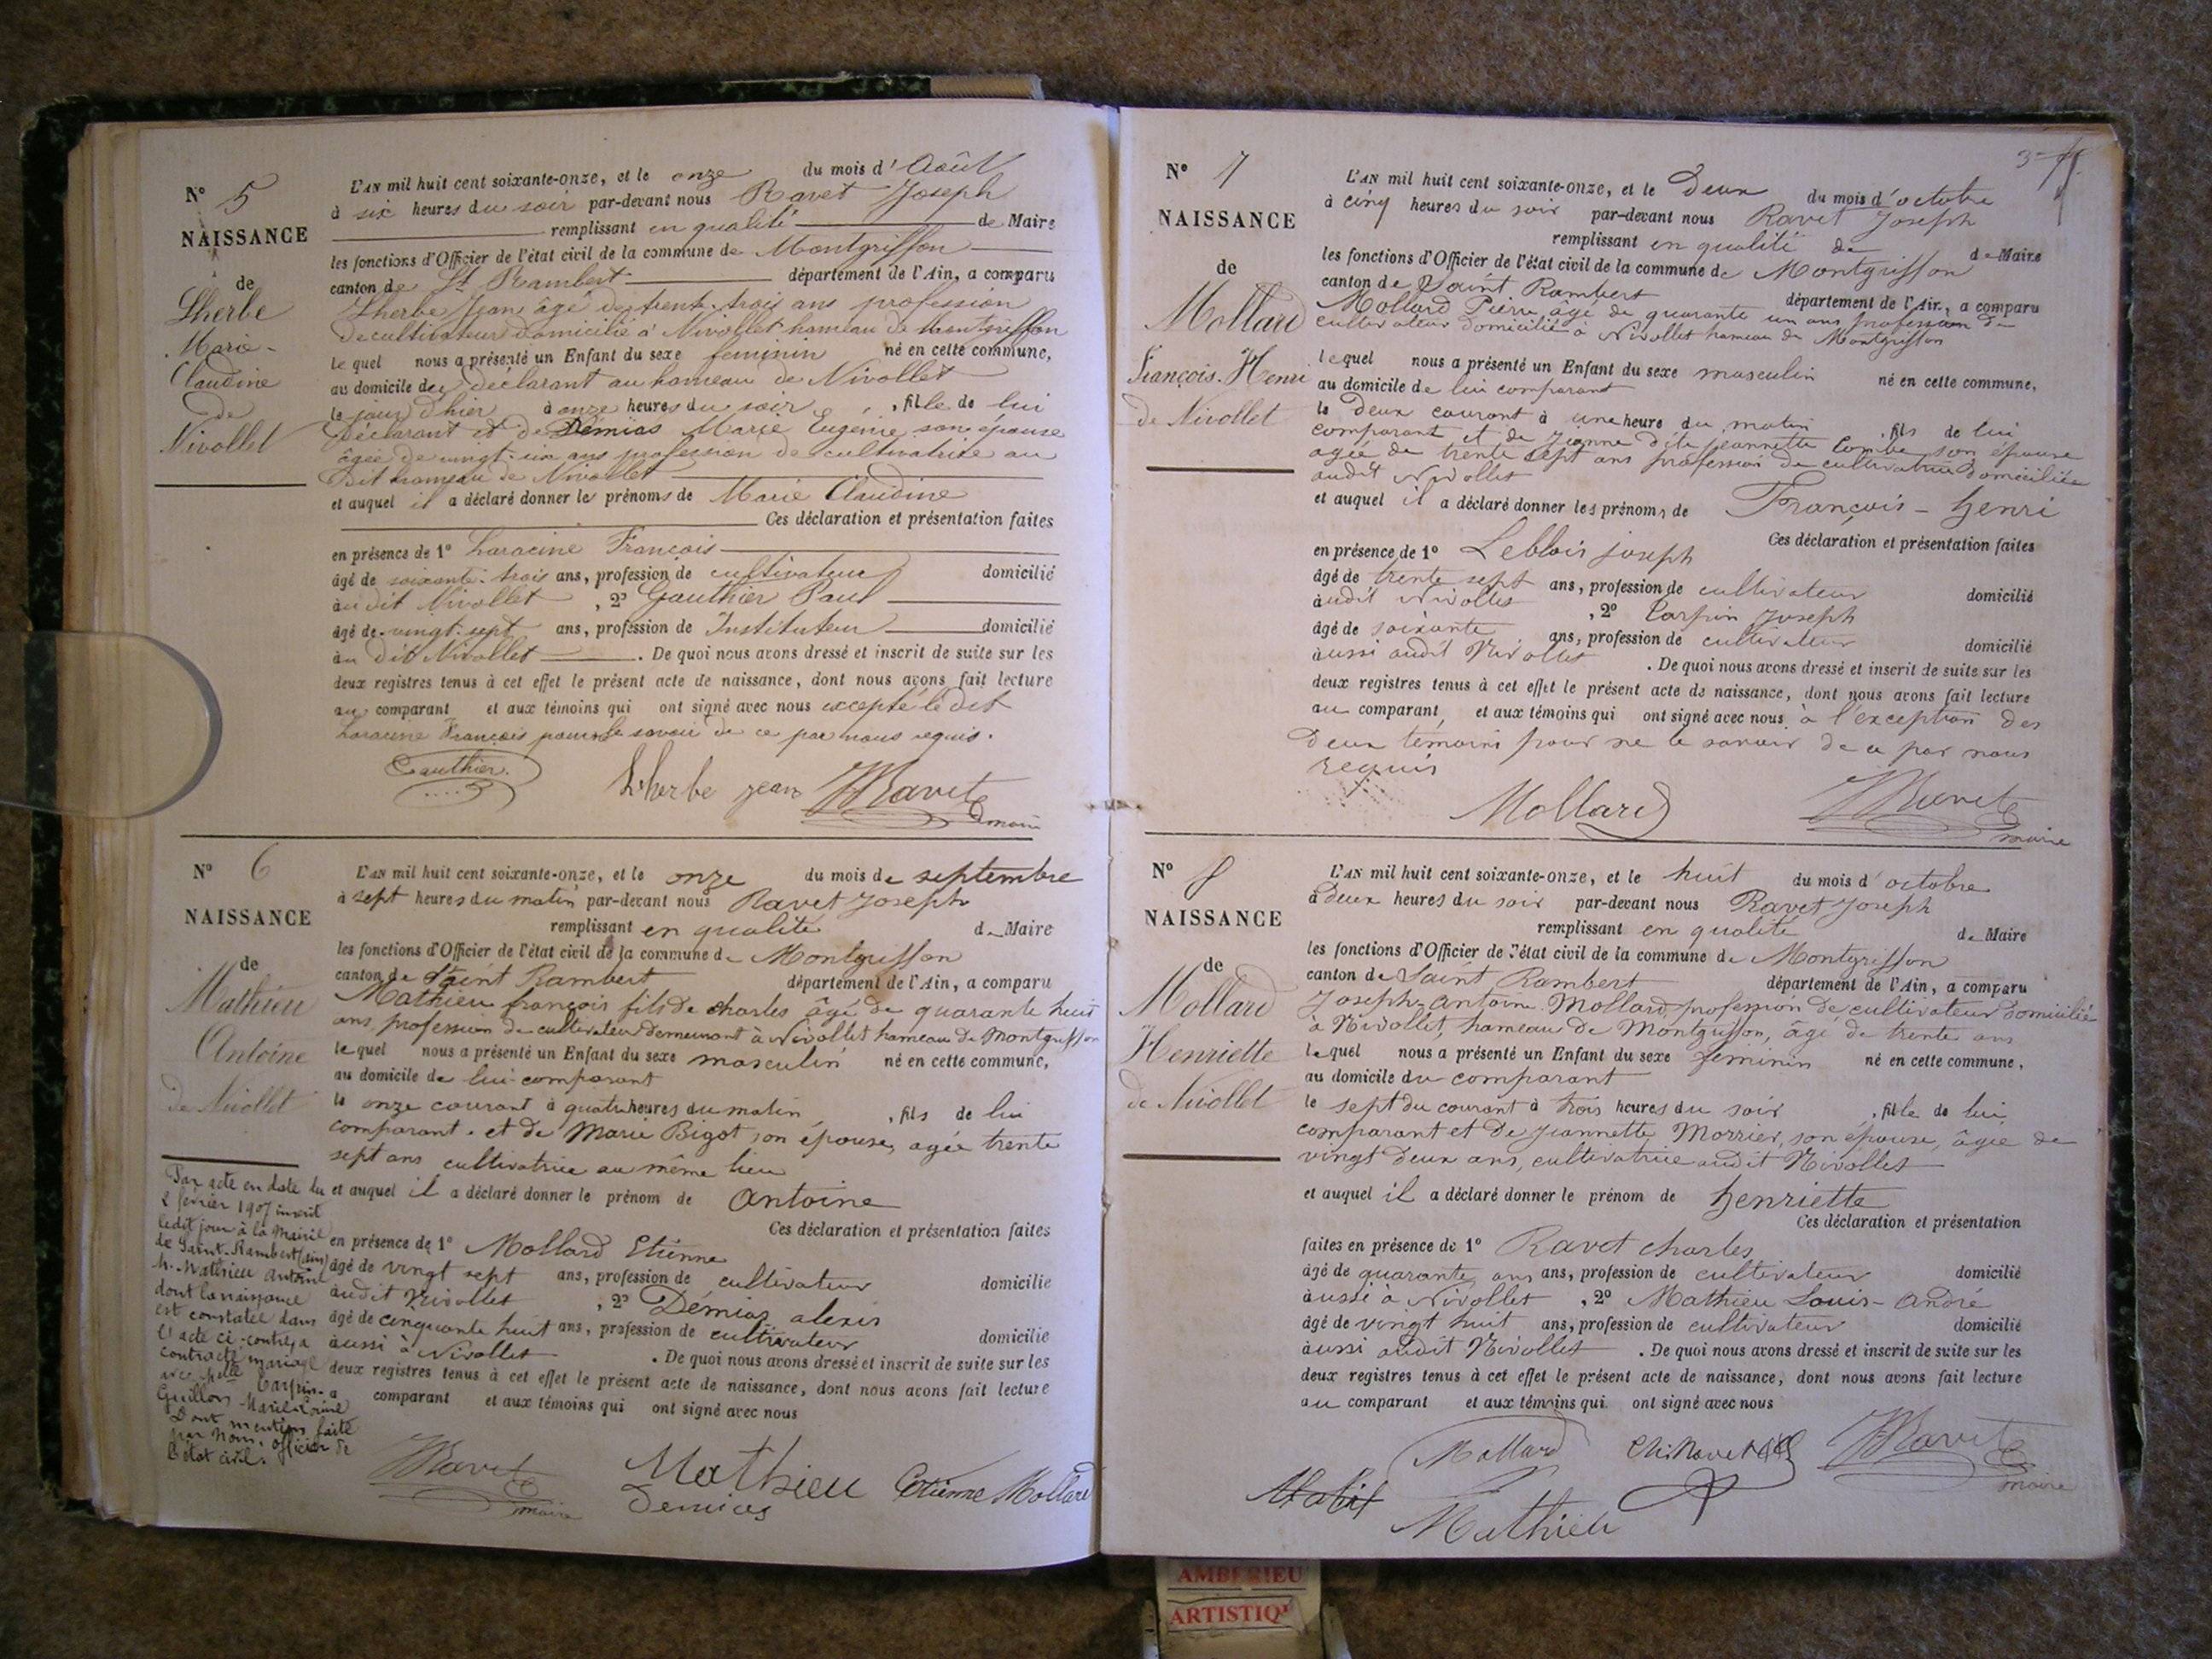 N° 5
NAISSANCE
de
Lherbe
Marie-
Claudine
de
Nivollet
L'AN mil huit cent soixante-onze, et le onze du mois d'Août
à six heures du soir par-devant nous Ravet Joseph
remplissant en qualité de Maire
les fonctions d'Officier de l'état civil de la commune de Montgriffon
canton de St Rambert département de l'Ain, a comparu
Lherbe Jean âgé de trente-trois ans profession
de cultivateur domicilié à Nivollet hameau de Montgriffon
le quel nous a présenté un Enfant du sexe feminin né en cette commune,
au domicile du déclarant au hameau de Nivollet
le jour d'hier à onze heures du soir, fille de lui
déclarant et de Démias Marie Eugénie son épouse
âgée de vingt-un ans profession de cultivatrice au
dit hameau de Nivollet
et auquel il a déclaré donner les prénoms de Marie Claudine
Ces déclaration et présentation faites
en présence de 1° Laracine François
âgé de soixante-trois ans, profession de cultivateur domicilié
au dit Nivollet, 2° Gauthier Paul
âgé de vingt-sept ans, profession de Instituteur domicilié
au dit Nivollet. De quoi nous avons dressé et inscrit de suite sur les
deux registres tenus à cet effet le présent acte de naissance, dont nous avons fait lecture
au comparant et aux témoins qui ont signé avec nous excepté le dit
Laracine François pour le savoir de ce par nous requis.
Gauthier
Lherbe jean
JRavet
maire
N° 6
NAISSANCE
de
Mathieu
Antoine
de Nivollet
L'AN mil huit cent soixante-onze, et le onze du mois de septembre
à sept heures du matin par-devant nous Ravet Joseph
remplissant en qualité de Maire
les fonctions d'Officier de l'état civil de la commune de Montgriffon
canton de Saint Rambert département de l'Ain, a comparu
Mathieu françois fils de charles âgé de quarante huit
ans, profession de cultivateur demeurant à Nivollet hameau de Montgriffon
le quel nous a présenté un Enfant du sexe masculin né en cette commune,
au domicile de lui comparant
le onze courant à quatre heures du matin, fils de lui
comparant. et de Marie Bigot son épouse, agée trente
sept ans cultivatrice au même lieu
et auquel il a déclaré donner le prénom de antoine
Ces déclaration et présentation faites
en présence de 1° Mollard Etienne
âgé de vingt sept ans, profession de cultivateur domicilié
audit Nivollet, 2° Démias alexis
âgé de cinquante huit ans, profession de cultivateur domicilié
aussi à Nivollet. De quoi nous avons dressé et inscrit de suite sur les
deux registres tenus à cet effet le présent acte de naissance, dont nous avons fait lecture
comparant et aux témoins qui ont signé avec nous
Par acte en date du
2 février 1907 inscrit
ledit jour à la Mairie
de Saint-Rambert (ain)
M. Mathieu Antoine
dont la naissance
est constatée dans
l'acte ci-contre, a
contracté mariage
avec Melle Carpin-
Guillon Marie
Dont mention faite
par Nous, officier de
l'état civil.
JRavet
maire
Mathieu
Demias
Etienne Mollard
N° 7
NAISSANCE
de
Mollard
François-Henri
de Nivollet
L'AN mil huit cent soixante-onze, et le Deux du mois d'octobre
à cinq heures du soir par-devant nous Ravet Joseph
remplissant en qualité de de Maire
les fonctions d'Officier de l'état civil de la commune de Montgriffon
canton de Saint Rambert département de l'Ain, a comparu
Mollard Pierre agé de quarante un ans profession de
cultivateur domicilié à Nivollet hameau de Montgriffon
lequel nous a présenté un Enfant du sexe masculin né en cette commune,
au domicile de lui comparant
le Deux courant à une heure du matin, fils de lui
comparant et de Jeanne dite jeannette Combe son épouse
agée de trente sept ans profession de cultivatrice domiciliée
audit Nivollet
et auquel il a déclaré donner les prénoms de François-henri
Ces déclaration et présentation faites
en présence de 1° Leblois joseph
âgé de trente sept ans, profession de cultivateur domicilié
audit Nivollet, 2° Carpin Joseph
âgé de soixante ans, profession de cultivateur domicilié
aussi audit Nivollet. De quoi nous avons dressé et inscrit de suite sur les
deux registres tenus à cet effet le présent acte de naissance, dont nous avons fait lecture
au comparant et aux témoins qui ont signé avec nous à l'exception des
Deux témoins pour ne le savoir de ce par nous
requis
Mollard
JRavet
maire
N° 8
NAISSANCE
de
Mollard
Henriette
de Nivollet
L'AN mil huit cent soixante-onze, et le huit du mois d'octobre
à Deux heures du soir par-devant nous Ravet Joseph
remplissant en qualité de Maire
les fonctions d'Officier de l'état civil de la commune de Montgriffon
canton de Saint Rambert département de l'Ain, a comparu
Joseph-antoine Mollard, profession de cultivateur domicilié
à Nivollet, hameau de Montgriffon, âgé de trente ans
lequel nous a présenté un Enfant du sexe feminin né en cette commune,
au domicile du comparant
le sept du courant à trois heures du soir, fille de lui
comparant et de jeannette Morrier, son épouse, âgée de
vingt deux ans, cultivatrice audit Nivollet
et auquel il a déclaré donner le prénom de henriette
Ces déclaration et présentation
faites en présence de 1° Ravet charles
âgé de quarante ans ans, profession de cultivateur domicilié
aussi à Nivollet, 2° Mathieu Louis-andré
âgé de vingt huit ans, profession de cultivateur domicilié
aussi audit Nivollet. De quoi nous avons dressé et inscrit de suite sur les
deux registres tenus à cet effet le présent acte de naissance, dont nous avons fait lecture
au comparant et aux témoins qui ont signé avec nous
Mollard
Ch. Ravet
JRavet
maire
Mathieu
AMBERIEU
ARTISTIQ